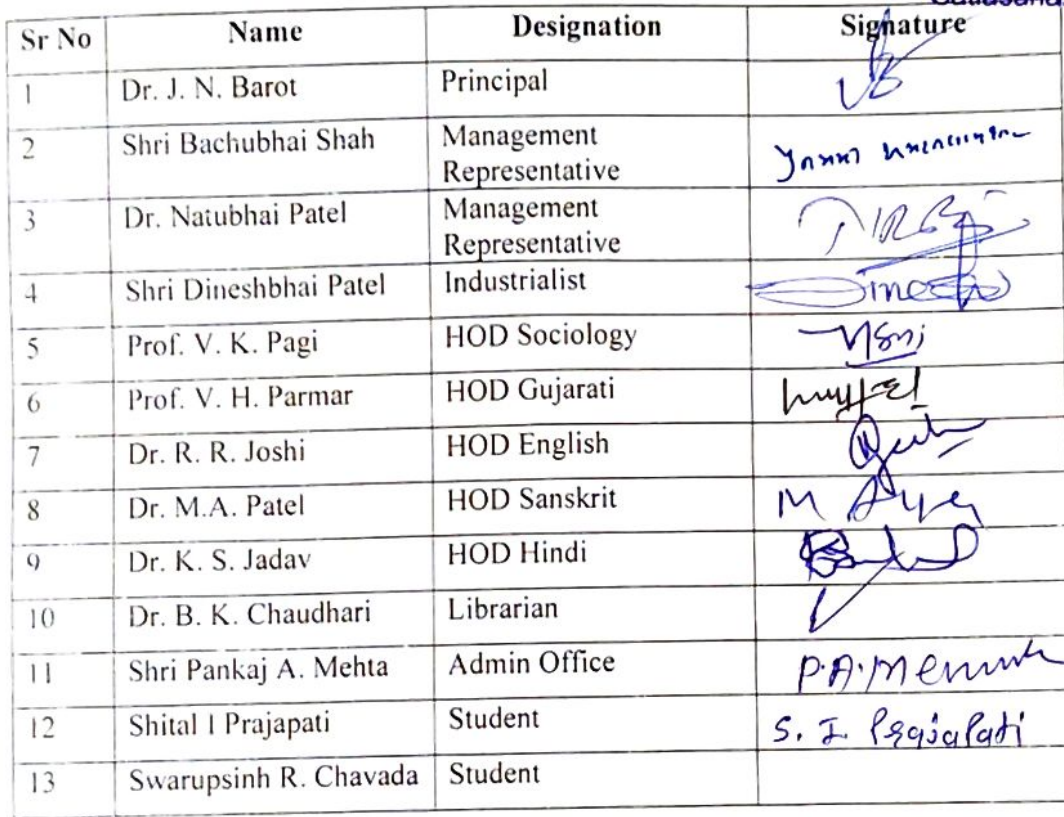 Sr No Name Designation Signature
1 Dr. J. N. Barot Principal
2 Shri Bachubhai Shah Management
Representative
3 Dr. Natubhai Patel Management
Representative
4 Shri Dineshbhai Patel Industrialist
5 Prof. V. K. Pagi HOD Sociology
6 Prof. V. H. Parmar HOD Gujarati
7 Dr. R. R. Joshi HOD English
8 Dr. M.A. Patel HOD Sanskrit
9 Dr. K. S. Jadav HOD Hindi
10 Dr. B. K. Chaudhari Librarian
11 Shri Pankaj A. Mehta Admin Office P.A.
12 Shital I Prajapati Student S. I. Prajapati
13 Swarupsinh R. Chavada Student